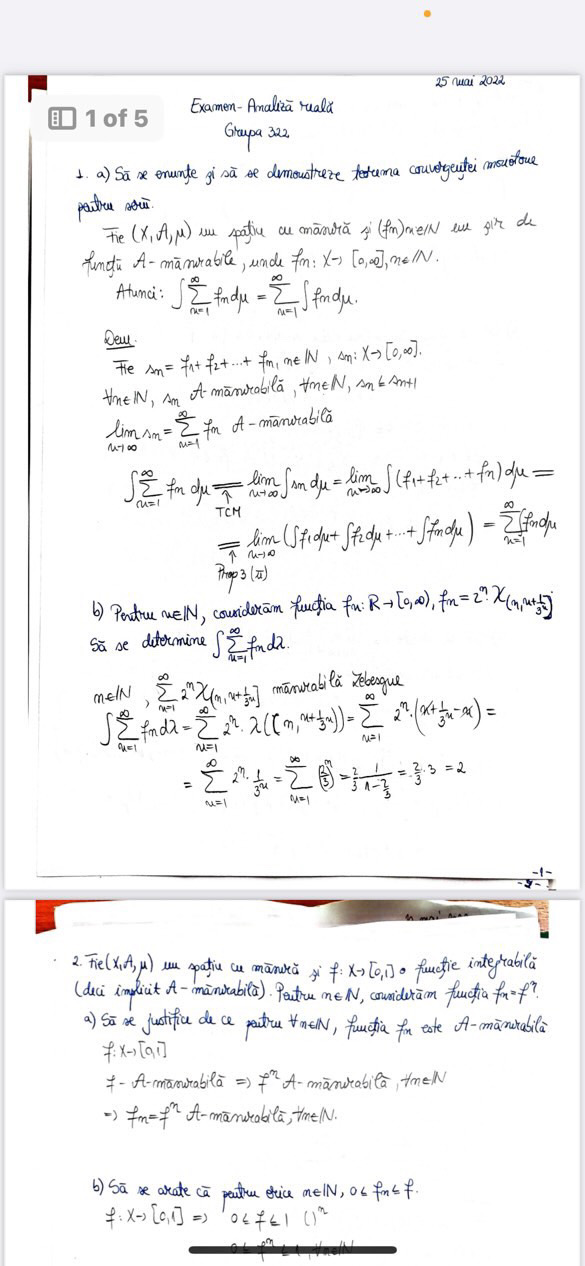 1 of 5
25 mai 2022
Examen - Analiză reală
Grupa 322
1. a) Să se enunțe și să se demonstreze teorema convergenței monotone
pentru serii.
Fie (X, A, μ) un spațiu cu măsură și (fn)n∈ℕ un șir de
funcții A-măsurabile, unde fn: X→[0,∞], n∈ℕ.
Atunci: ∫∑_{n=1}^{∞} fn dμ = ∑_{n=1}^{∞} ∫fn dμ.
Dem.
Fie sn = f1 + f2 + ... + fn, n∈ℕ, sn: X→[0,∞].
∀n∈ℕ, sn A-măsurabilă, ∀n∈ℕ, sn ≤ sn+1
lim_{n→∞} sn = ∑_{n=1}^{∞} fn A-măsurabilă
∫∑_{n=1}^{∞} fn dμ = lim_{n→∞} ∫sn dμ = lim_{n→∞} ∫(f1+f2+...+fn) dμ =
↑
TCM
= lim_{n→∞} (∫f1dμ + ∫f2dμ + ... + ∫fndμ) = ∑_{n=1}^{∞} ∫fndμ
↑
Prop 3 (ii)
b) Pentru n∈ℕ, considerăm funcția fn: R→[0,∞), fn = 2^n · χ_{(n, n+1/3^n]}
Să se determine ∫∑_{n=1}^{∞} fn dλ.
n∈ℕ, ∑_{n=1}^{∞} 2^n χ_{(n, n+1/3^n]} măsurabilă Lebesgue
∫∑_{n=1}^{∞} fn dλ = ∑_{n=1}^{∞} 2^n · λ((n, n+1/3^n)) = ∑_{n=1}^{∞} 2^n · (n + 1/3^n - n) =
= ∑_{n=1}^{∞} 2^n · 1/3^n = ∑_{n=1}^{∞} (2/3)^n = 2/3 · 1/(1-2/3) = 2/3 · 3 = 2
-1-
2. Fie (X, A, μ) un spațiu cu măsură și f: X→[0,1] o funcție integrabilă
(deci implicit A-măsurabilă). Pentru n∈ℕ, considerăm funcția fn = f^n.
a) Să se justifice de ce pentru ∀n∈ℕ, funcția fn este A-măsurabilă
f: X→[0,1]
f - A-măsurabilă => f^n A-măsurabilă, ∀n∈ℕ
=> fn = f^n A-măsurabilă, ∀n∈ℕ.
b) Să se arate că pentru orice n∈ℕ, 0 ≤ fn ≤ f.
f: X→[0,1] => 0 ≤ f ≤ 1 ()^n